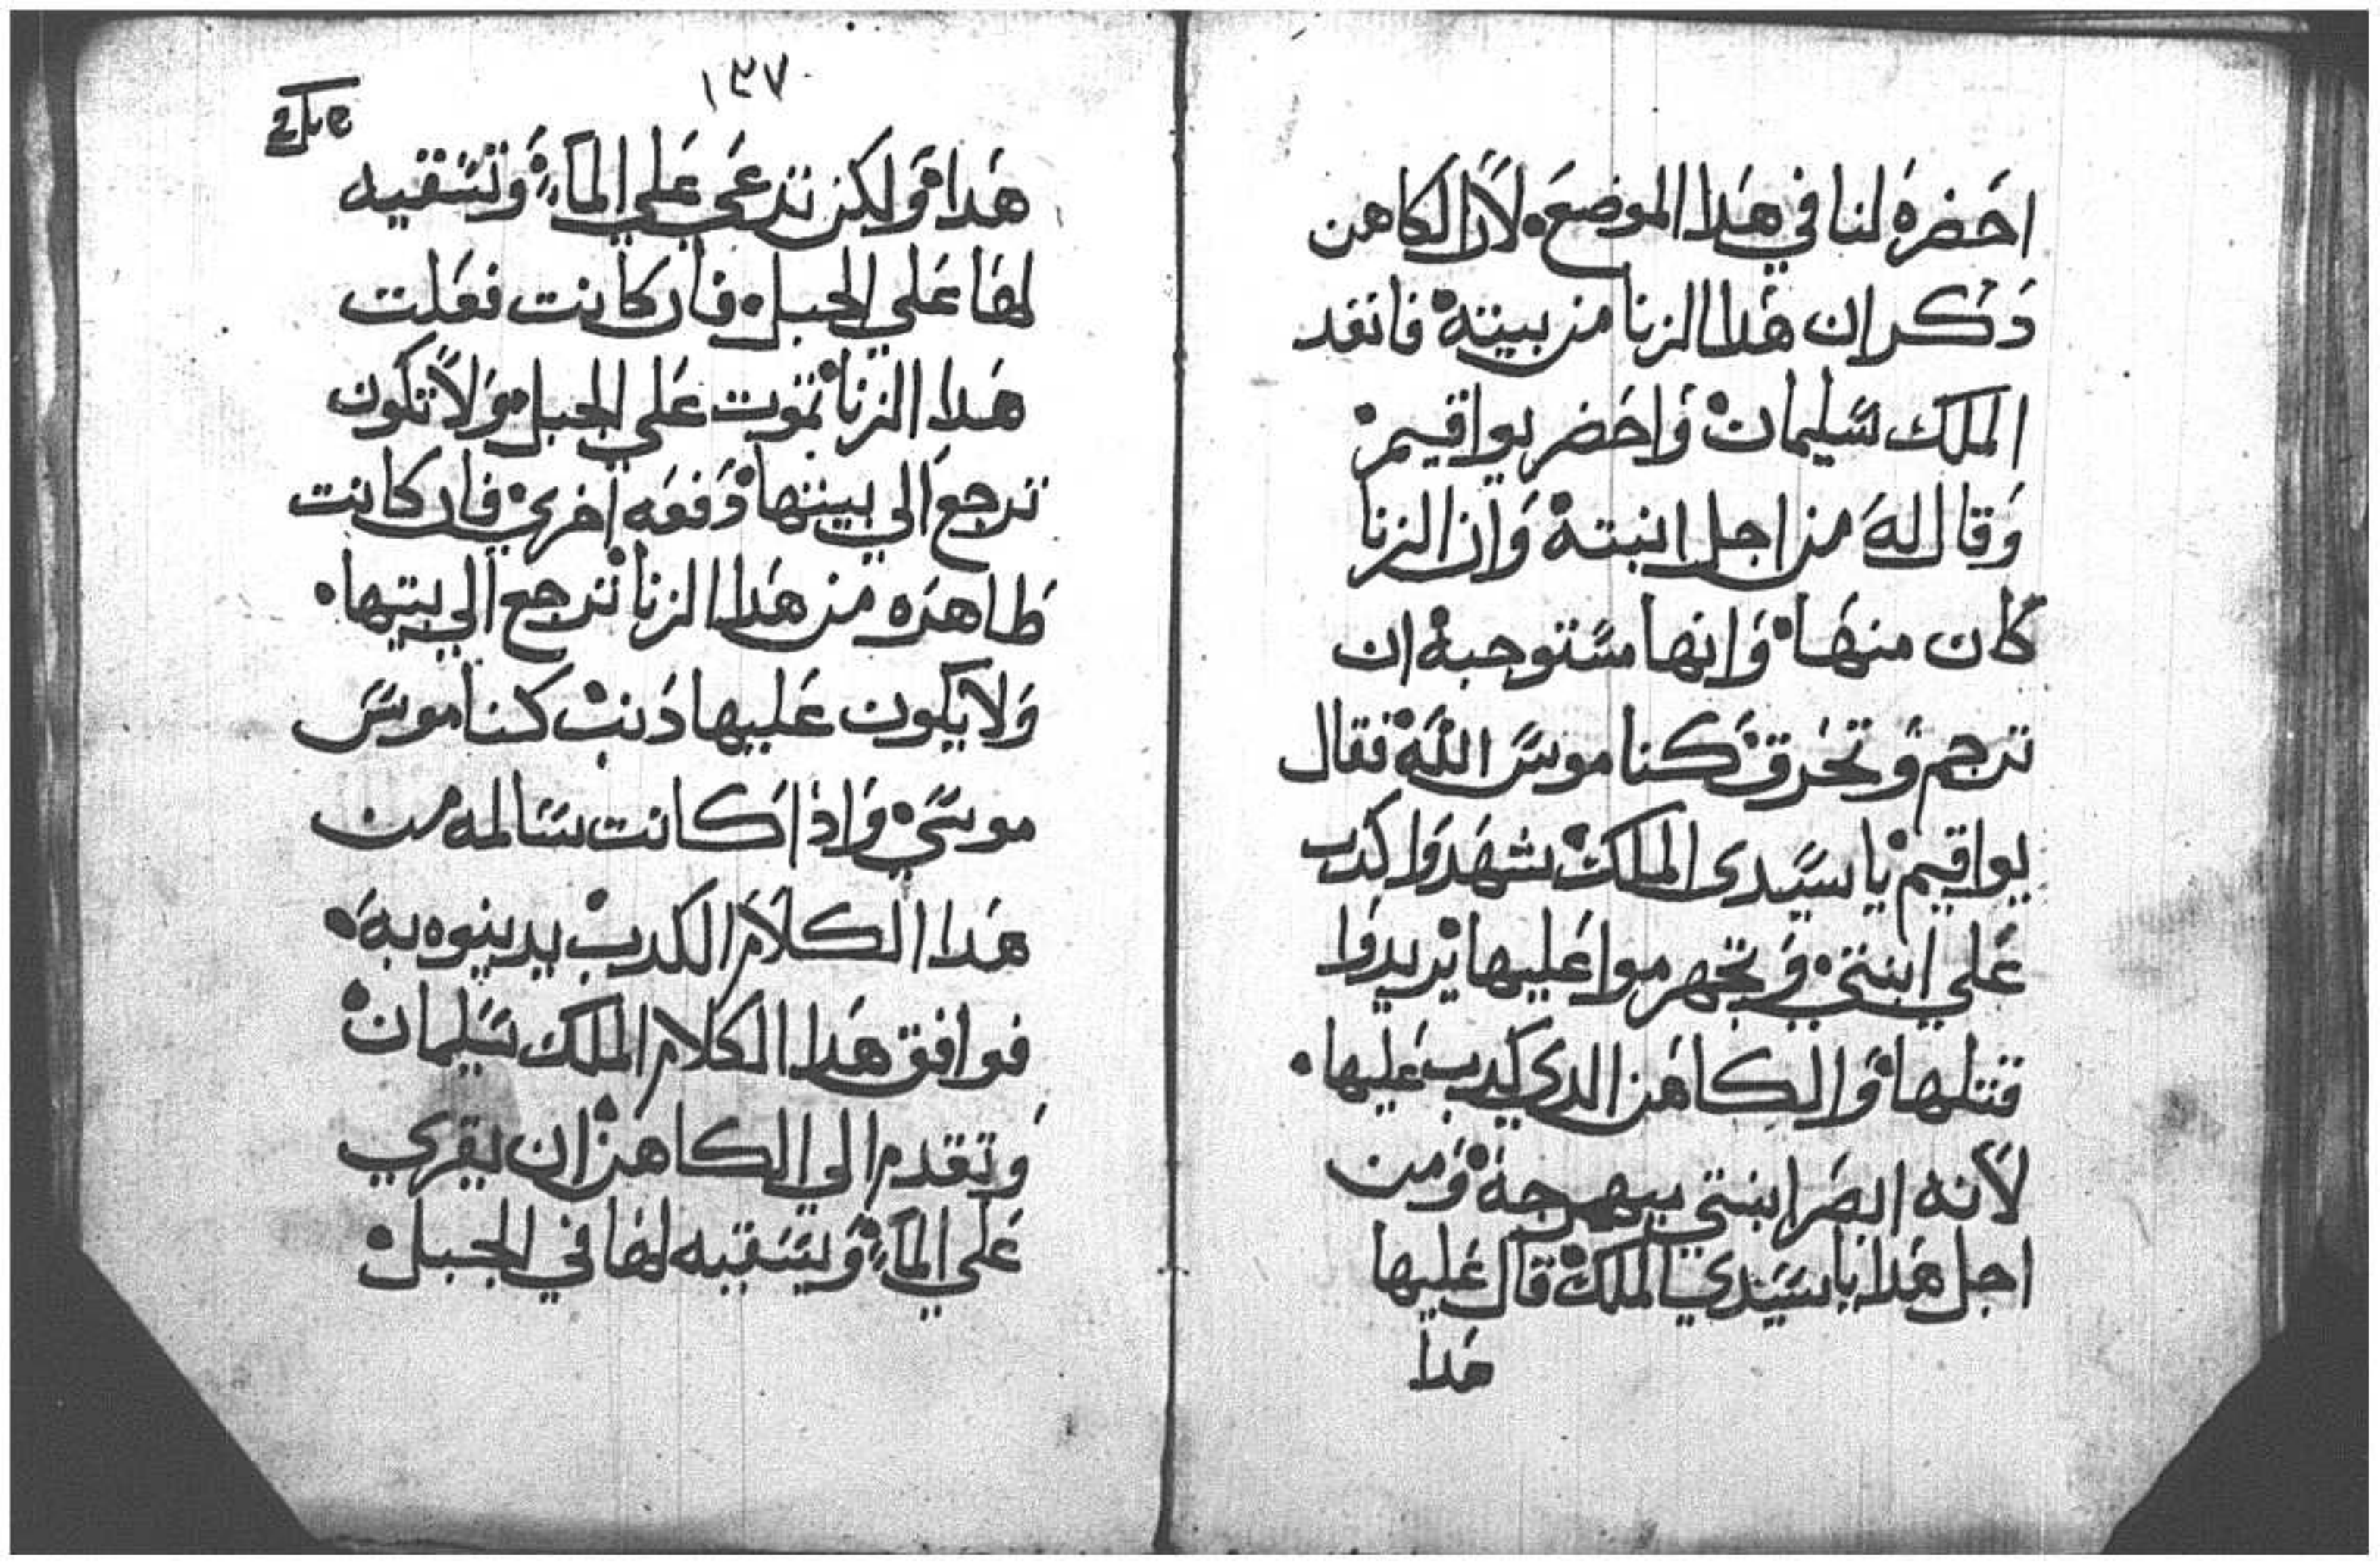 احضره لنا في هدا الموضع لان الكاهن
دكر ان هدا الزنا من بيته فانفد
الملك سليمان واحضر يواقيم
وقال له من اجل ابنته وان الزنا
كان منها وانها مستوجبة ان
ترجم وتحرق كناموس الله فقال
يواقيم يا سيدى الملك شهدوا كدب
علي ابنتي وتجهرموا عليها يريدوا
قتلها والكاهن الدي كدب عليها
لانه ابصر ابنتي بيهرجة ومن
اجل هدا يا سيدي الملك قال عليها
هدا
١٣٧
هدا ولكن تدعي علي الماء وتسقيه
لها علي الجبل فان كانت فعلت
هدا الزنا تموت علي الجبل ولا تكون
ترجع الي بيتها دفعه اخري فان كانت
طاهره من هدا الزنا ترجع الي بيتها
ولا يكون عليها دنب كناموس
موسي واذا كانت سالمه من
هدا الكلام الكدب يدينوه به
فوافق هدا الكلام الملك سليمان
وتقدم الي الكاهن ان يقري
علي الماء ويسقيه لها في الجبل